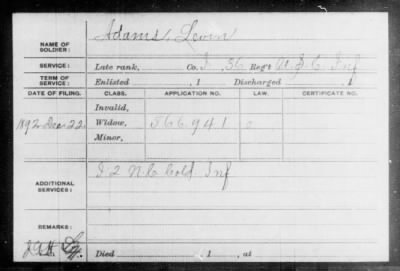 NAME OF SOLDIER: Adams, Levin
SERVICE: Late rank, Co. I, 36 Reg't U. S. C. Inf
TERM OF SERVICE: Enlisted , 1 Discharged , 1
DATE OF FILING. CLASS. APPLICATION NO. LAW. CERTIFICATE NO.
Invalid,
1892 Dec 22 Widow, 566941
Minor,
ADDITIONAL SERVICES: I 2 N.C. Cold Inf
REMARKS:
Died , 1 , at